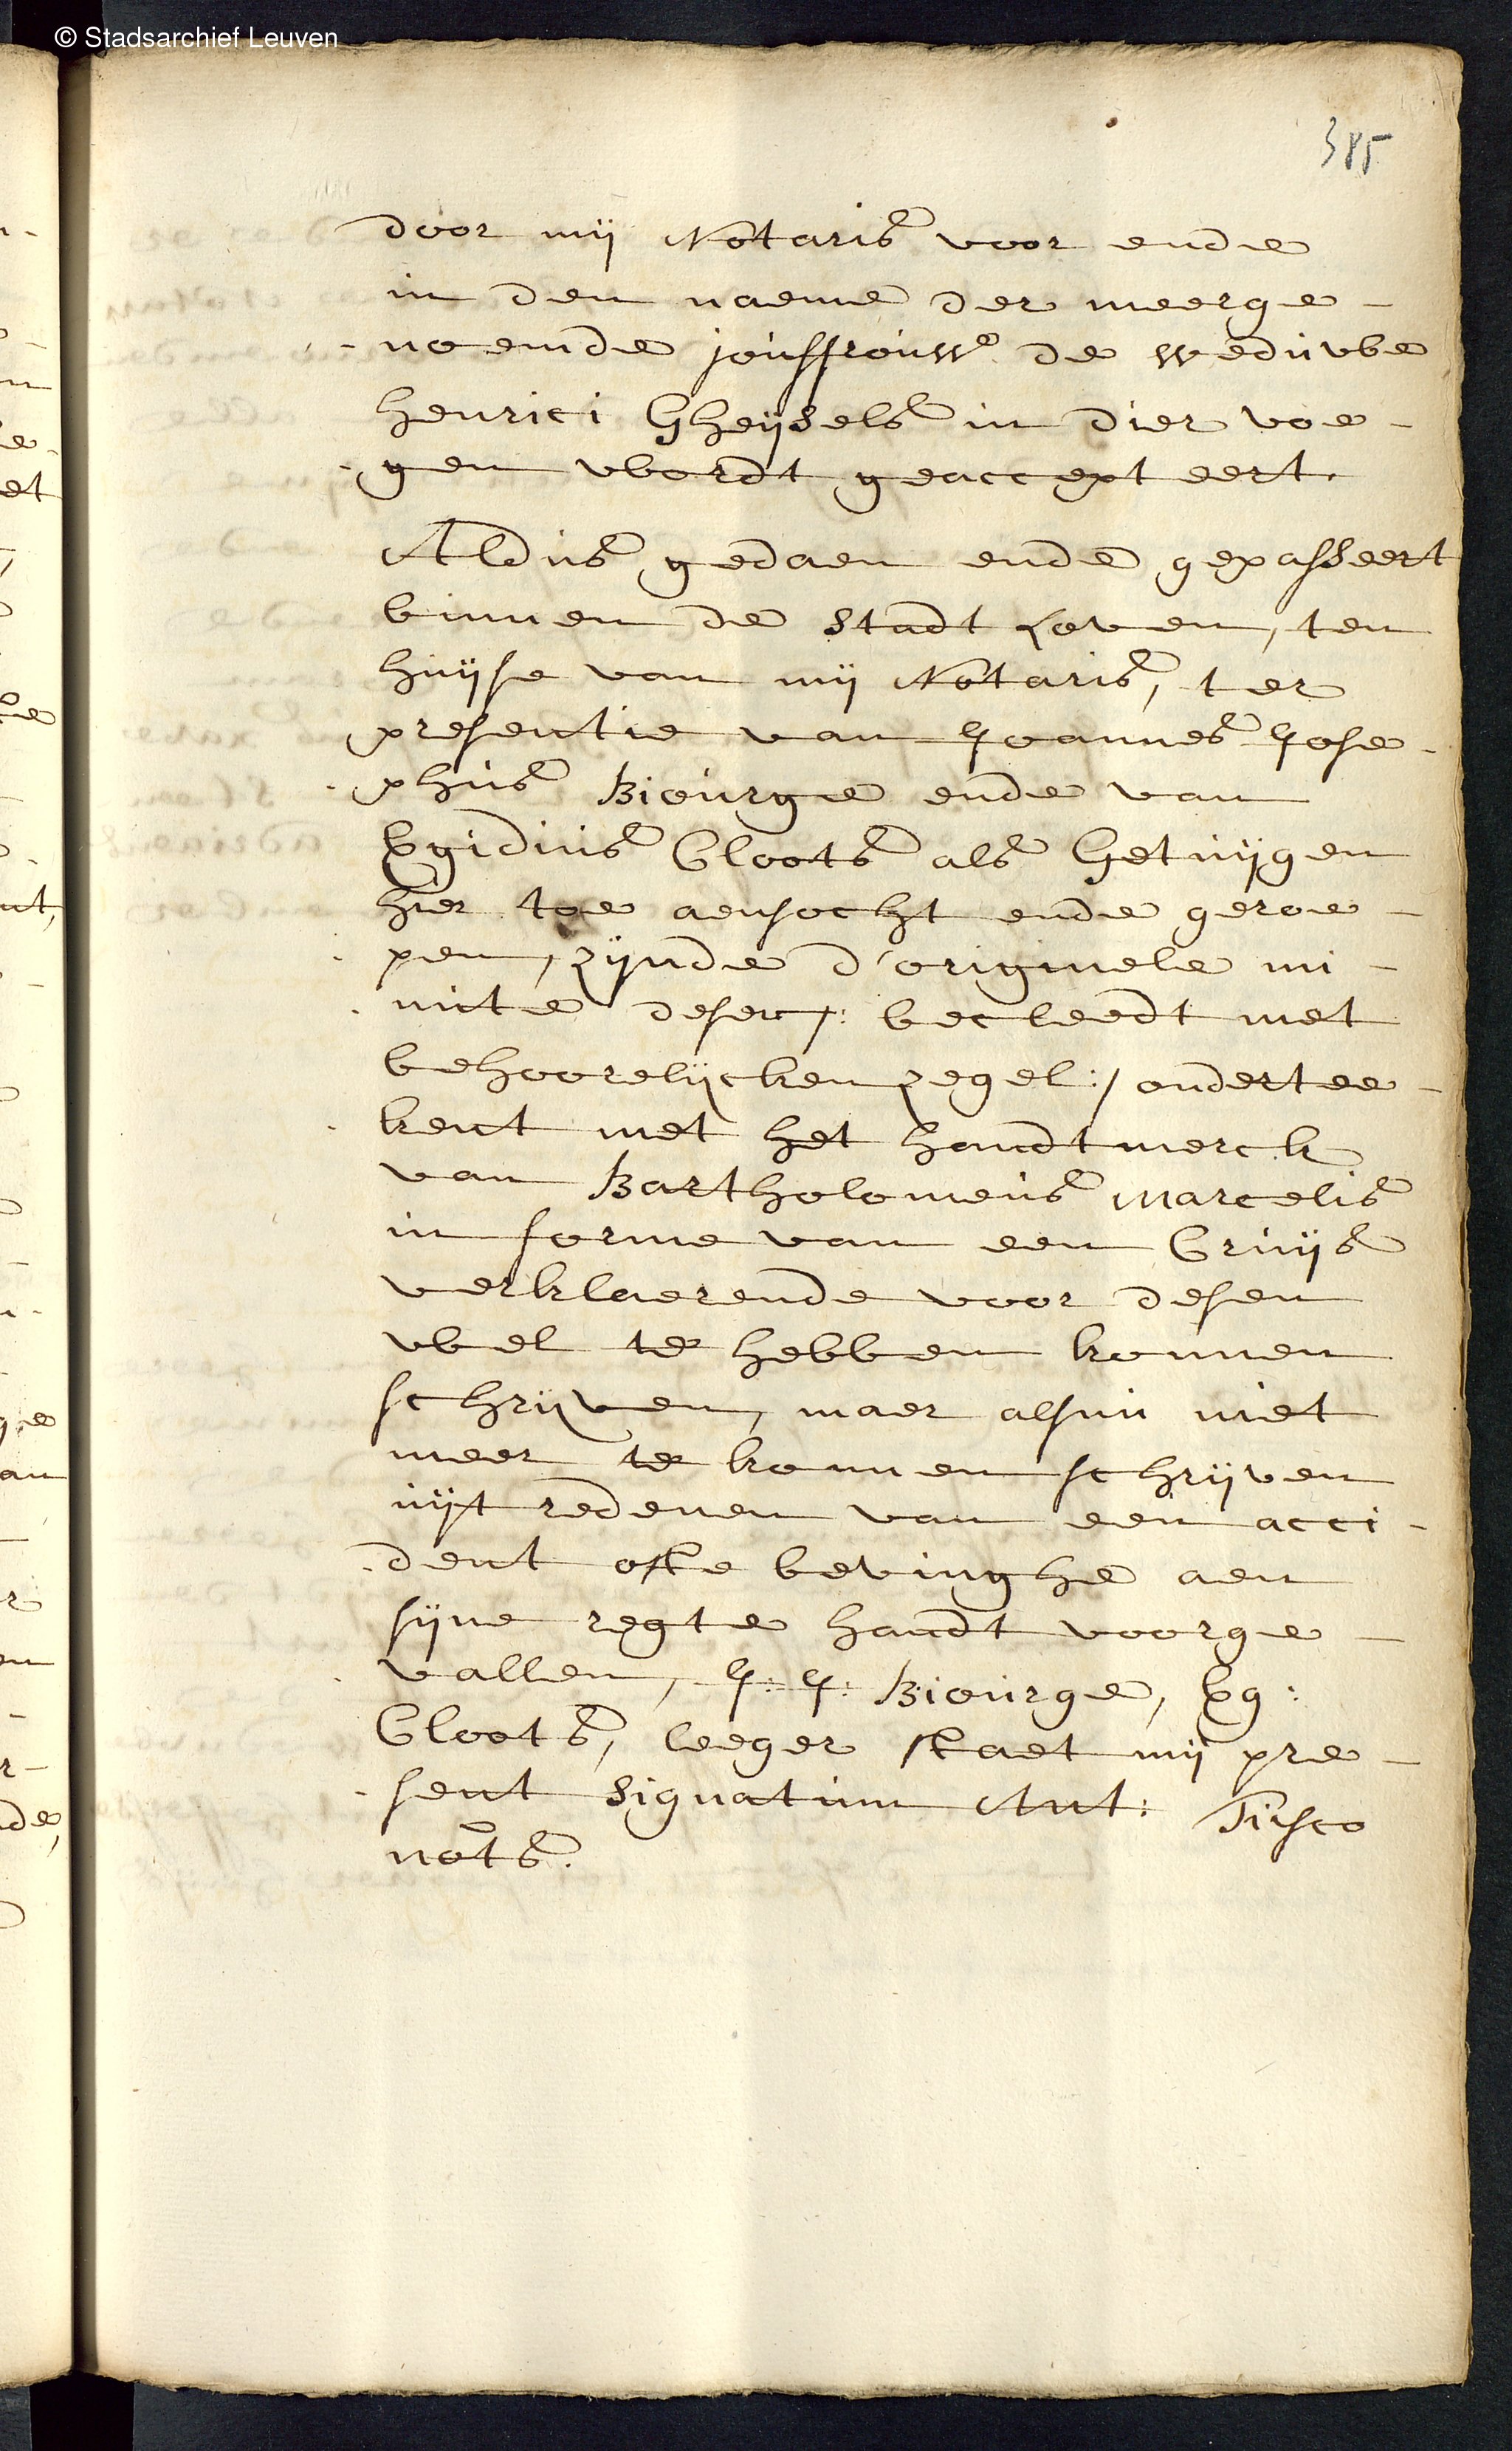 © Stadsarchief Leuven
385
door mij Notaris voor ende
in den naeme der meerge-
-noemde jouffrouwe de weduwe
Henrici Gheijsels in dier voe-
-gen wordt geaccepteert.
Aldus gedaen ende gepasseert
binnen de stadt Loven, ten
huijse van mij Notaris, ter
presentie van Joannes Jose-
-phus Biourge ende van
Egidius Cloots als Getuijgen
hier toe aensocht ende geroe-
-pen, zijnde d'originele mi-
-nute deser /: becleedt met
behoorelijcken zegel :/ ondertee-
-kent met het handtmerck
van Bartholomeus Marcelis
in forme van een Cruijs
verklaerende voor desen
wel te hebben konnen
schrijven, maer alsnu niet
meer te konnen schrijven
uijt redenen van een acci-
-dent ofte bevinghe aen
sijne regte handt voorge-
-vallen, J: J: Biourge, Eg:
Cloots, leeger staet mij pre-
-sent signatum Ant: Tisco
nots.